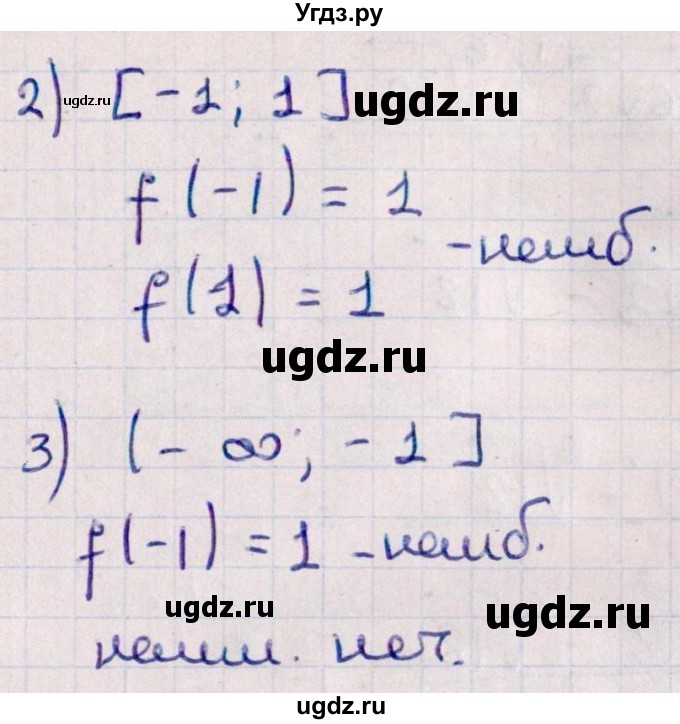 Угдз.ру
2) [-1; 1]
ugdz.ru ugdz.ru
f(-1) = 1
- наиб.
f(1) = 1
ugdz.ru
3) (-∞; -1]
f(-1) = 1 - наиб.
ugdz.ru ugdz.ru
наим. нет.
ugdz.ru